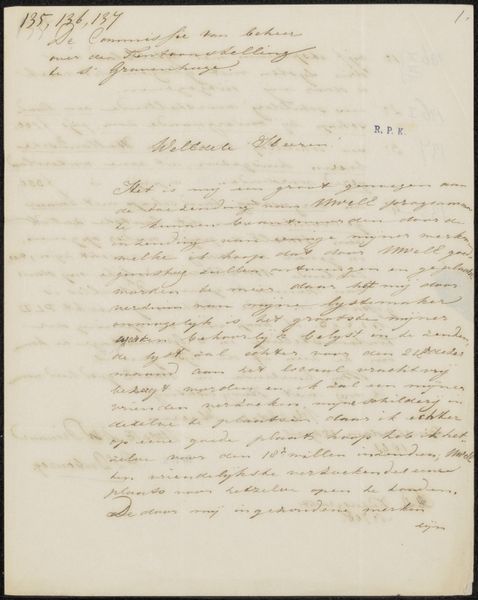 135, 136, 137
1.
De Commissie van beheer
over den Tentoonstelling
te s' Gravenhage.
R. P. K.
WelEdele Heeren!
Het is mij een groot genoegen aan
de toezending van UwEll programma
te kunnen beantwoorden door de
inzending van eenige mijner werken
welke ik hoop dat door UwEll goed
gunstig zullen ontvangen en geplaatst
worden te meer, daar het mij door
verzuim van mijne lystemaker
onmogelijk is het grootste mijner
werken behoorlijk belyst in te zenden,
de lyst zal echter voor den 21e dezer
maand aan het lokaal vrachtvrij
bezorgt worden en ik zal een mijner
vrienden verzoeken mijne schilderij in
dezelve te plaatsen, daar ik echter
op eene goede plaats hoop heb ik het
zelve voor den 18e willen inzenden, UwEll
ten vriendelijkste verzoekende eene
plaats voor hetzelve open te houden.
De door mij ingezondene werken
zijn